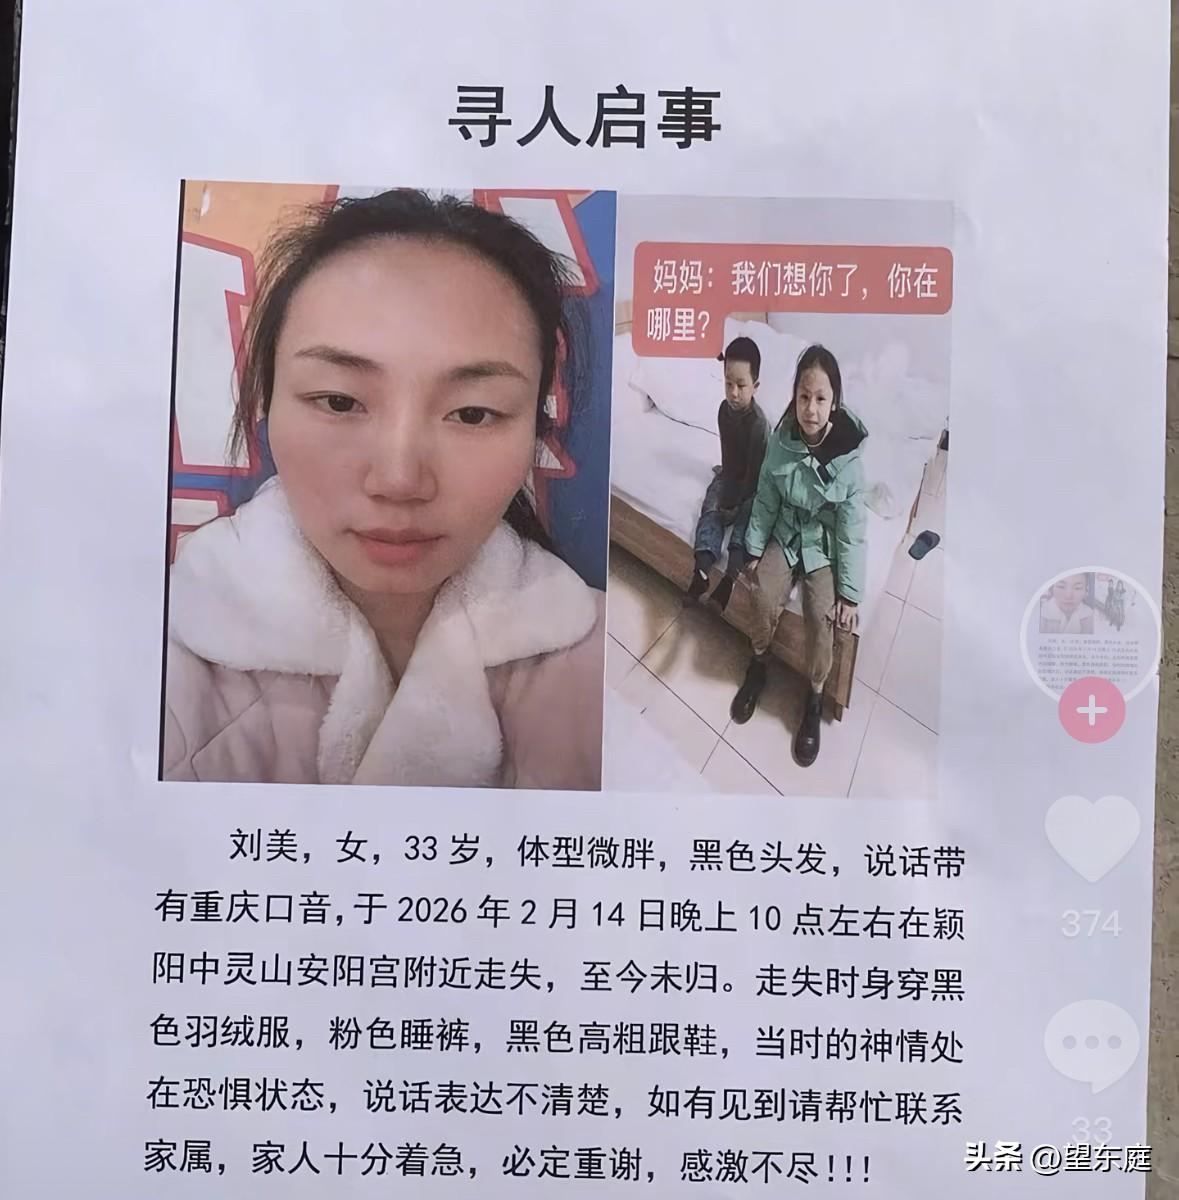 寻人启事
妈妈：我们想你了，你在
哪里？
刘美，女，33岁，体型微胖，黑色头发，说话带
有重庆口音，于2026年2月14日晚上10点左右在颍
阳中灵山安阳宫附近走失，至今未归。走失时身穿黑
色羽绒服，粉色睡裤，黑色高粗跟鞋，当时的神情处
在恐惧状态，说话表达不清楚，如有见到请帮忙联系
家属，家人十分着急，必定重谢，感激不尽!!!
374
33
头条 @望东庭